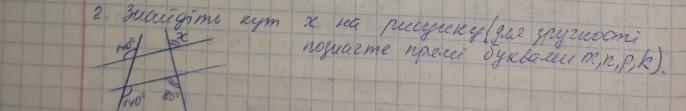 2. Знайдіть кут x на рисунку (для зручності
позначте прямі буквами m, n, p, k).
x
140°
140°
80°